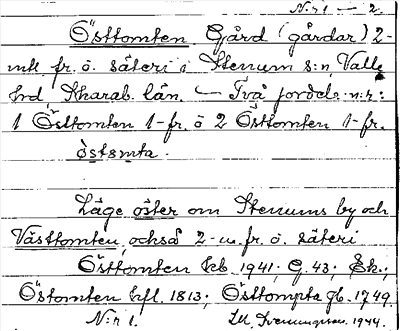 N:r 1 — 2.
Östtomten Gård (gårdar) 2-
mtl fr. o. säteri i Stenum s:n, Valle
hd, Skarab. län. — Två jordeb. n:r:
1 Östtomten 1- fr. o 2 Östtomten 1- fr.
östsmta.
Läge öster om Stenums by och
Västtomten, också 2-m. fr. o. säteri
Östtomten Kb. 1941; G. 43; Ek.;
Östomten hfl. 1813; Östtompta gb. 1749.
N:r 1. 1944.